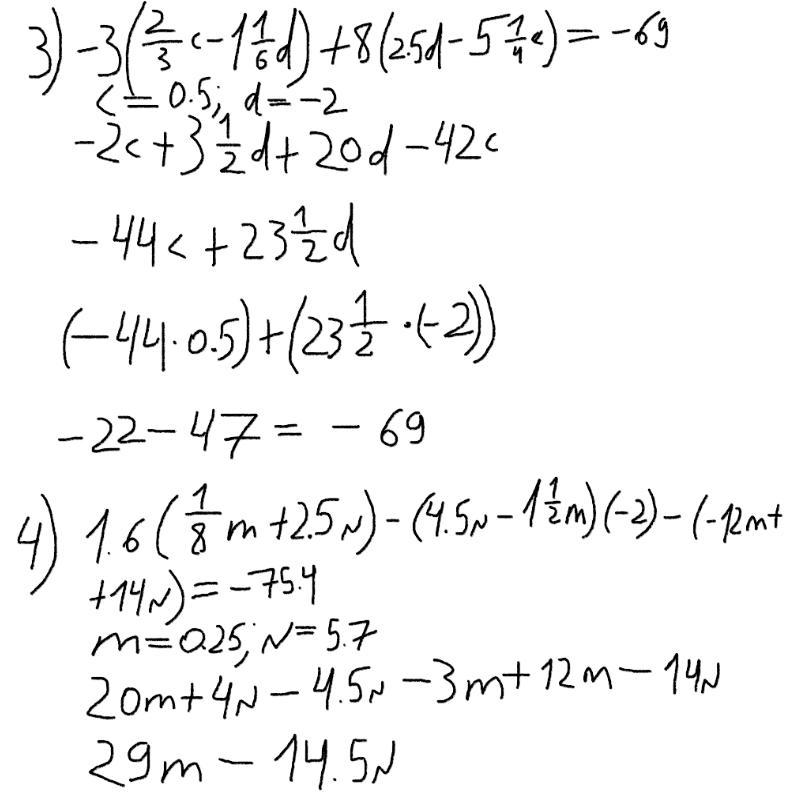 3) -3(2/3 c - 1 1/6 d) + 8(2.5d - 5 1/4 c) = -69
c = 0.5; d = -2
-2c + 3 1/2 d + 20d - 42c
-44c + 23 1/2 d
(-44 · 0.5) + (23 1/2 · (-2))
-22 - 47 = - 69
4) 1.6(1/8 m + 2.5N) - (4.5N - 1 1/2 m)(-2) - (-12m +
+14N) = -75.4
m = 0.25; N = 5.7
20m + 4N - 4.5N - 3m + 12m - 14N
29m - 14.5N